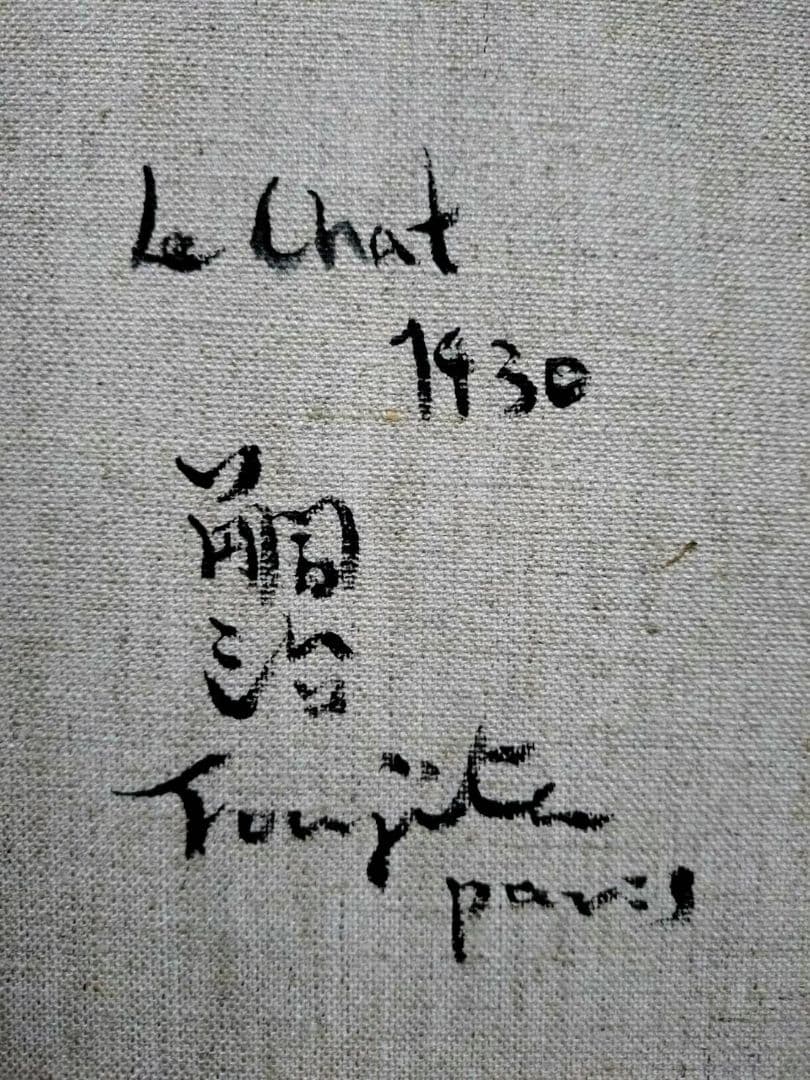 Le Chat
1930
嗣
治
Foujita
paris